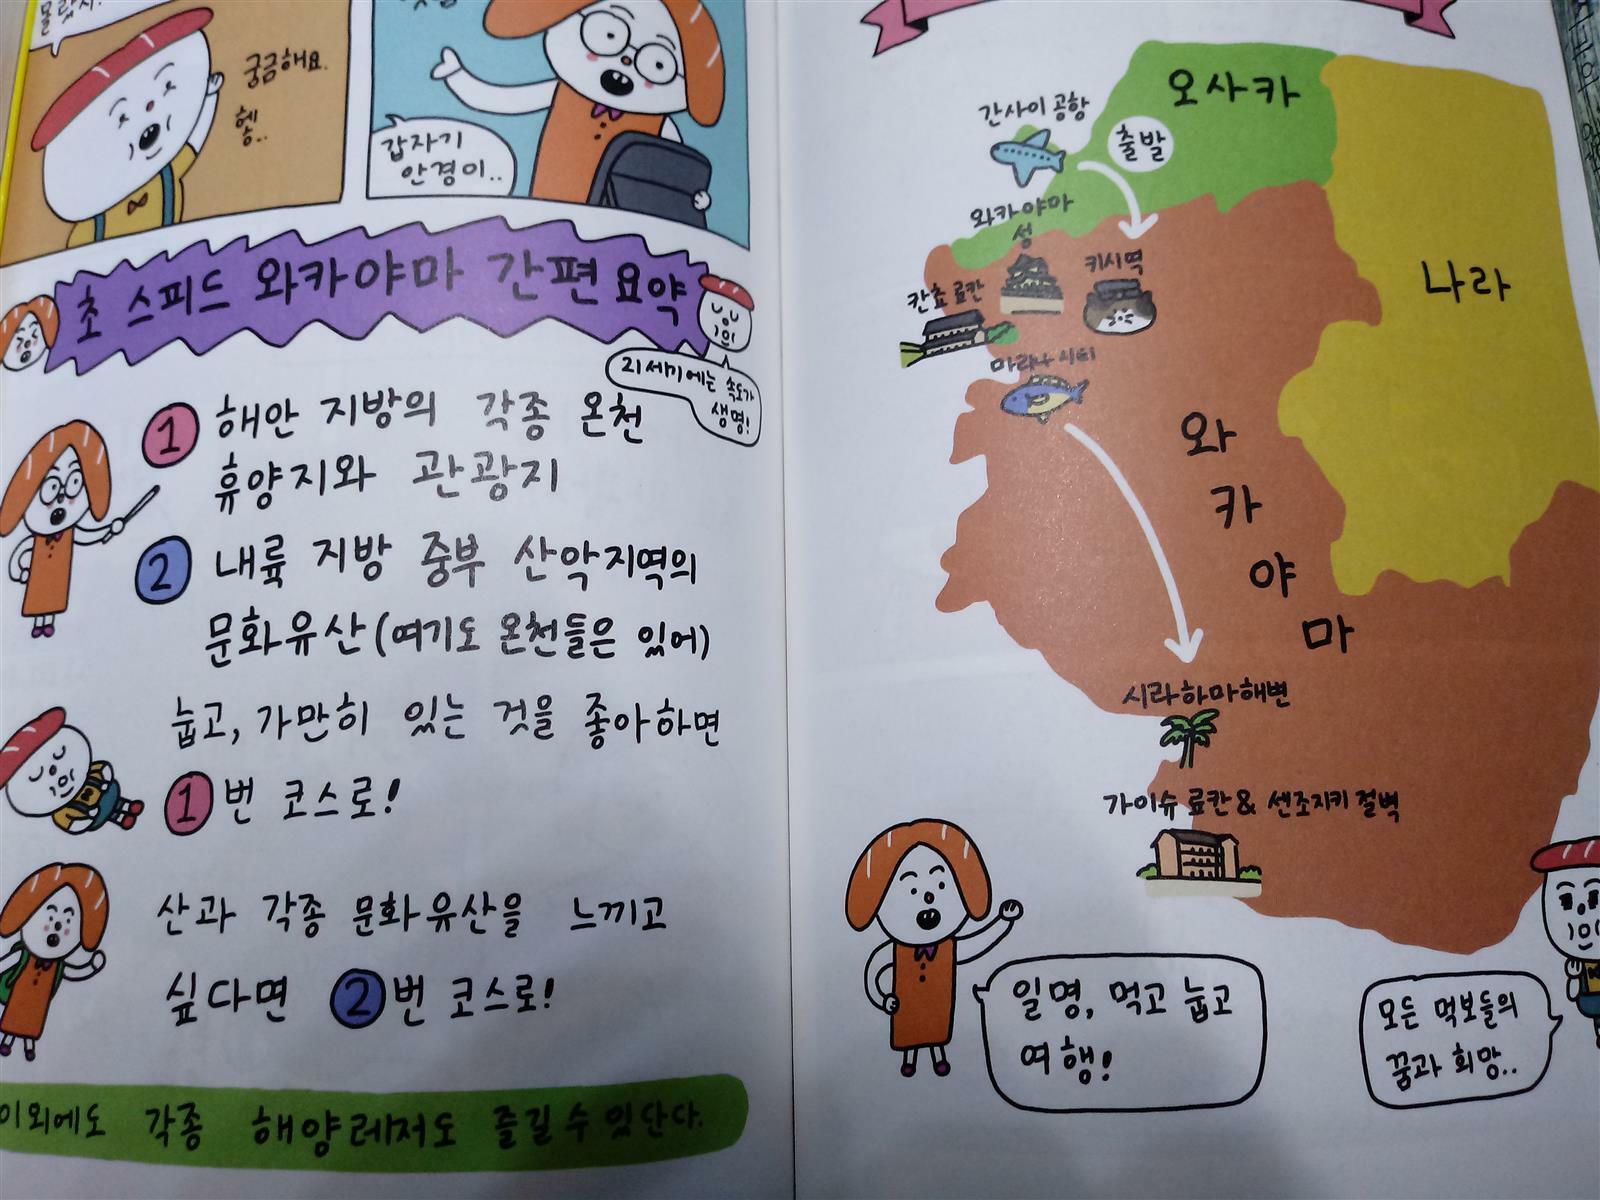 궁금해요.
헿..
갑자기
안경이..
초 스피드 와카야마 간편 요약
21세기에는 속도가
생명!
1 해안 지방의 각종 온천
휴양지와 관광지
2 내륙 지방 중부 산악지역의
문화유산(여기도 온천들은 있어)
눕고, 가만히 있는 것을 좋아하면
1번 코스로!
산과 각종 문화유산을 느끼고
싶다면 2번 코스로!
이외에도 각종 해양레저도 즐길 수 있단다.
오사카
간사이 공항
출발
와카야마
성
키시역
칸쵸 료칸
마리나 시티
나라
와
카
야
마
시라하마해변
가이슈 료칸 & 센조지키 절벽
일명, 먹고 눕고
여행!
모든 먹보들의
꿈과 희망..